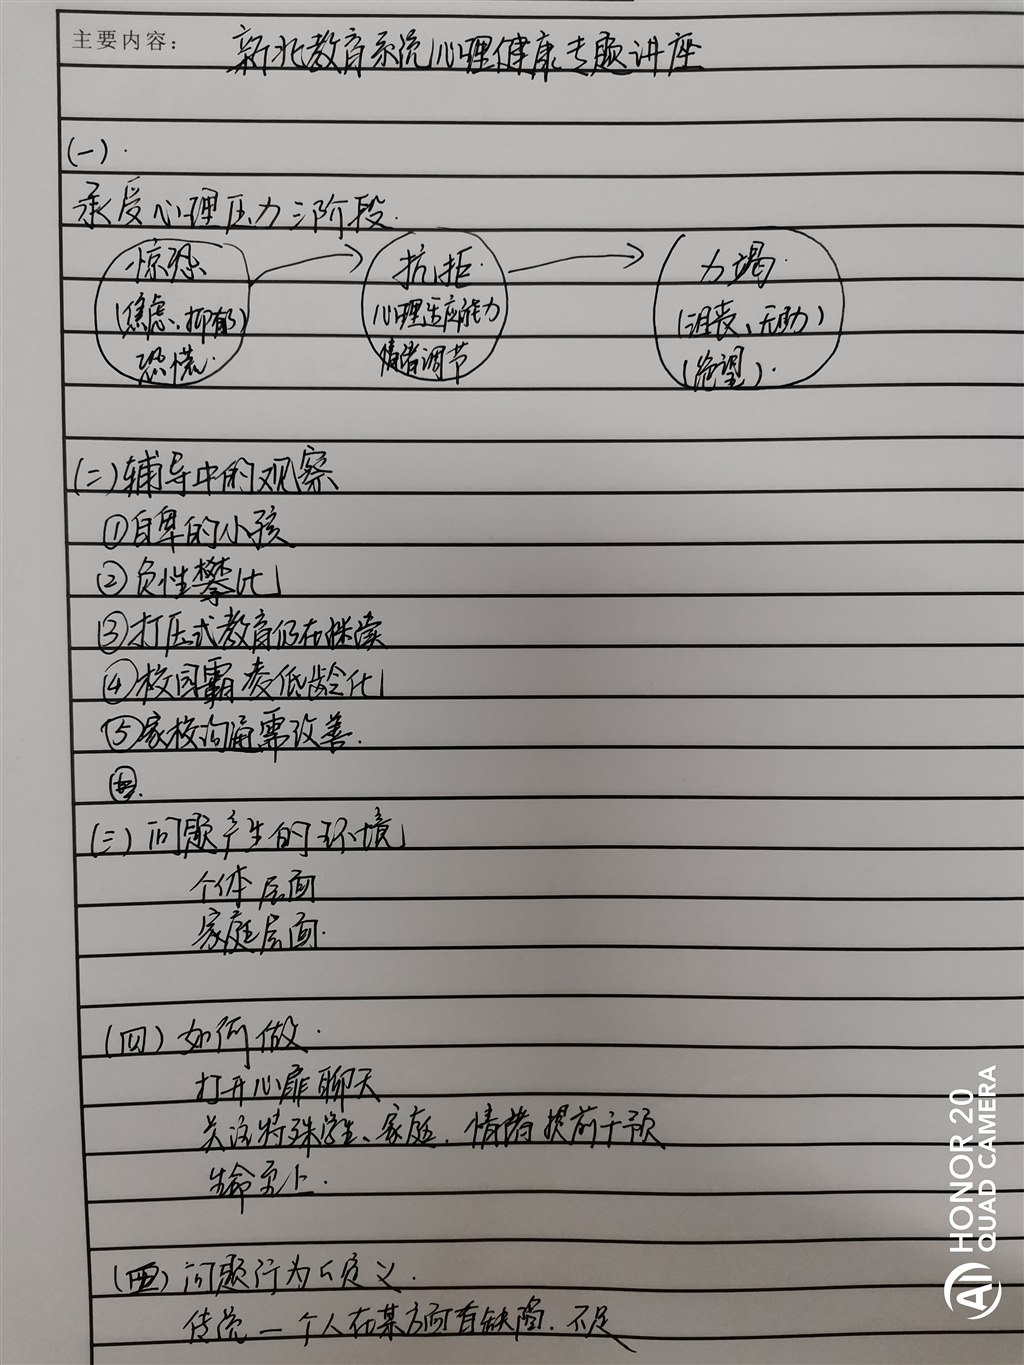 主要内容：
新北教育系统心理健康专题讲座
(一).
承受心理压力三阶段.
惊恐
(焦虑、抑郁)
恐慌.
抗拒.
心理适应能力
情绪调节
力竭.
(沮丧、无助)
(绝望).
(二)辅导中的观察
①自卑的小孩
②负性攀比
③打压式教育仍在继续
④校园霸凌低龄化
⑤家校沟通需改善.
(三)问题产生的环境
个体层面
家庭层面.
(四)如何做.
打开心扉聊天
关注特殊学生、家庭.情绪提前干预
生命至上.
(五)问题行为与定义.
传统一个人在某方面有缺陷.不足
HONOR 20
AI QUAD CAMERA